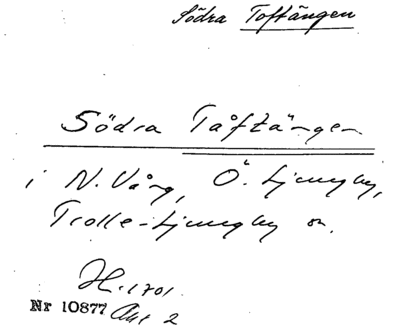 Södra Toftängen
Södra Tåftängen
i N. Vång, Ö. Ljungby,
Trolle-Ljungby sn.
H. 1701.
Nr 10877 Akt 2